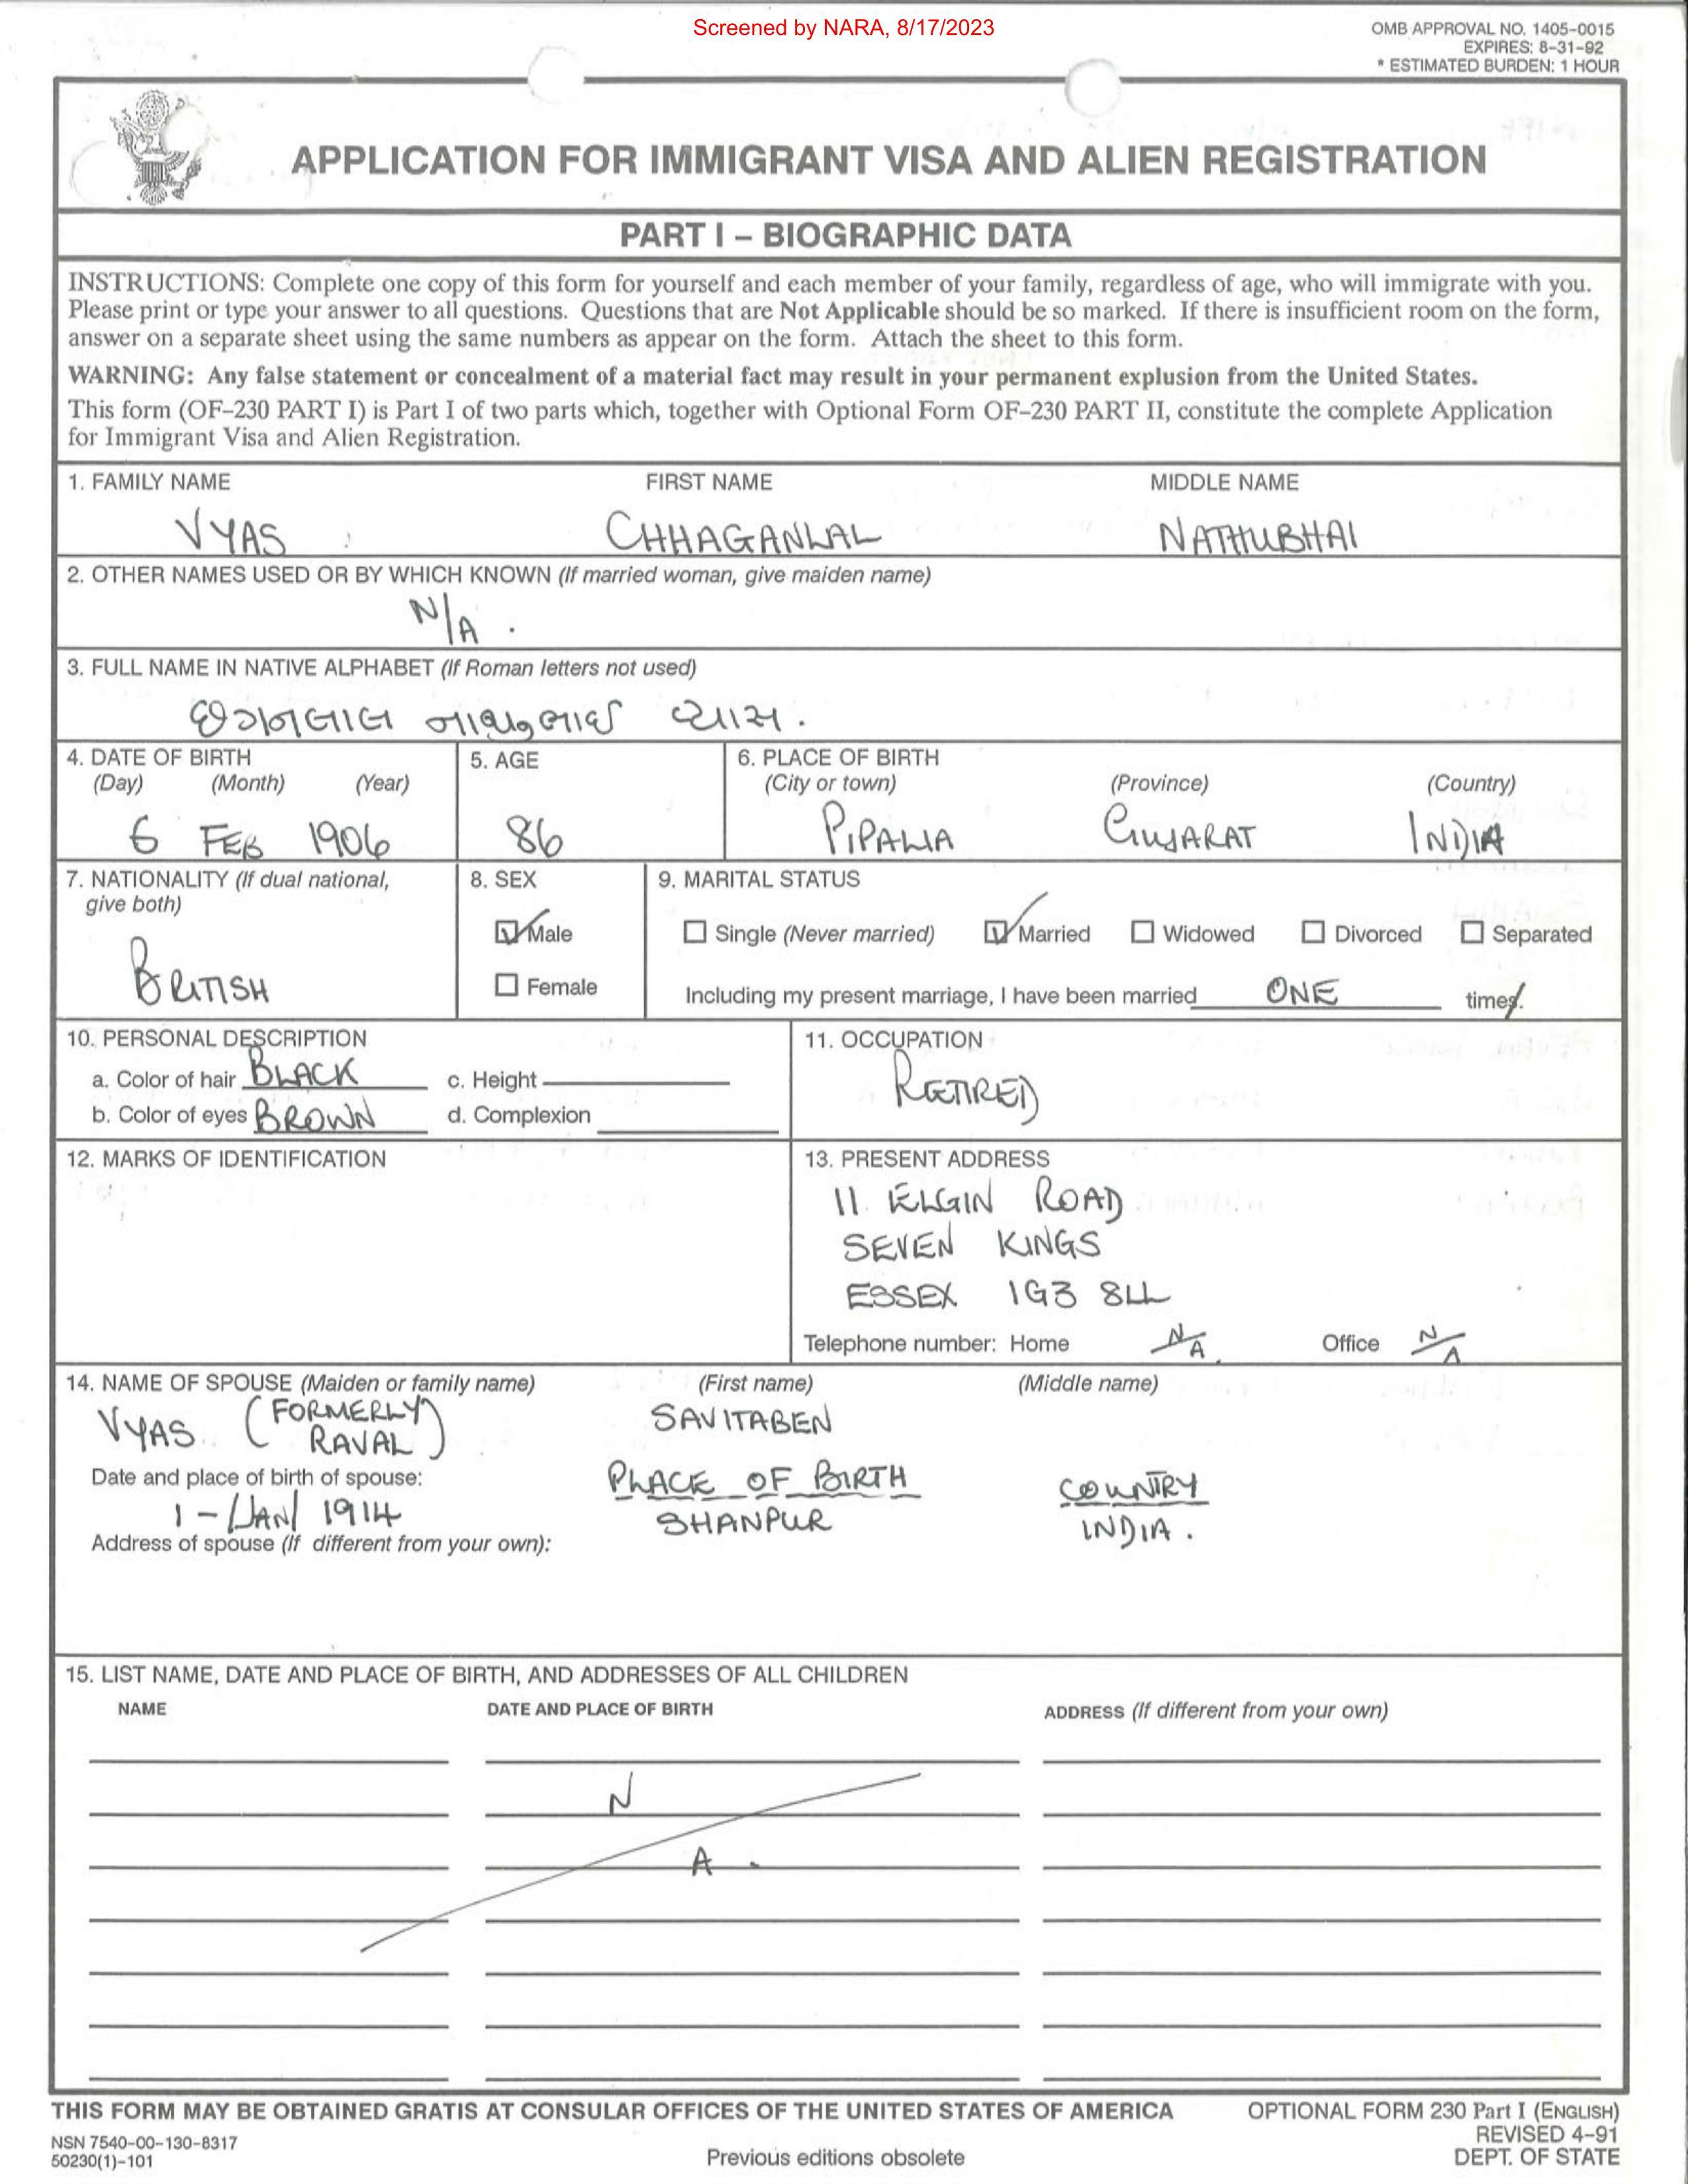 Screened by NARA, 8/17/2023
OMB APPROVAL NO. 1405-0015
EXPIRES: 8-31-92
* ESTIMATED BURDEN: 1 HOUR
APPLICATION FOR IMMIGRANT VISA AND ALIEN REGISTRATION
PART I – BIOGRAPHIC DATA
INSTRUCTIONS: Complete one copy of this form for yourself and each member of your family, regardless of age, who will immigrate with you.
Please print or type your answer to all questions. Questions that are Not Applicable should be so marked. If there is insufficient room on the form,
answer on a separate sheet using the same numbers as appear on the form. Attach the sheet to this form.
WARNING: Any false statement or concealment of a material fact may result in your permanent explusion from the United States.
This form (OF-230 PART I) is Part I of two parts which, together with Optional Form OF-230 PART II, constitute the complete Application
for Immigrant Visa and Alien Registration.
1. FAMILY NAME FIRST NAME MIDDLE NAME
VYAS CHHAGANLAL NATHUBHAI
2. OTHER NAMES USED OR BY WHICH KNOWN (If married woman, give maiden name)
N/A .
3. FULL NAME IN NATIVE ALPHABET (If Roman letters not used)
છગનલાલ નાથુભાઈ વ્યાસ .
4. DATE OF BIRTH 5. AGE 6. PLACE OF BIRTH
(Day) (Month) (Year) (City or town) (Province) (Country)
6 FEB 1906 86 PIPALIA GUJARAT INDIA
7. NATIONALITY (If dual national, 8. SEX 9. MARITAL STATUS
give both)
Male Single (Never married) Married Widowed Divorced Separated
BRITISH Female Including my present marriage, I have been married ONE times.
10. PERSONAL DESCRIPTION 11. OCCUPATION
a. Color of hair BLACK c. Height RETIRED
b. Color of eyes BROWN d. Complexion
12. MARKS OF IDENTIFICATION 13. PRESENT ADDRESS
11 ELGIN ROAD
SEVEN KINGS
ESSEX IG3 8LL
Telephone number: Home N/A . Office N/A
14. NAME OF SPOUSE (Maiden or family name) (First name) (Middle name)
VYAS (FORMERLY RAVAL) SAVITABEN
Date and place of birth of spouse: PLACE OF BIRTH COUNTRY
1 - JAN 1914 SHANPUR INDIA .
Address of spouse (If different from your own):
15. LIST NAME, DATE AND PLACE OF BIRTH, AND ADDRESSES OF ALL CHILDREN
NAME DATE AND PLACE OF BIRTH ADDRESS (If different from your own)
N
A .
THIS FORM MAY BE OBTAINED GRATIS AT CONSULAR OFFICES OF THE UNITED STATES OF AMERICA OPTIONAL FORM 230 Part I (ENGLISH)
NSN 7540-00-130-8317 REVISED 4-91
50230(1)-101 Previous editions obsolete DEPT. OF STATE